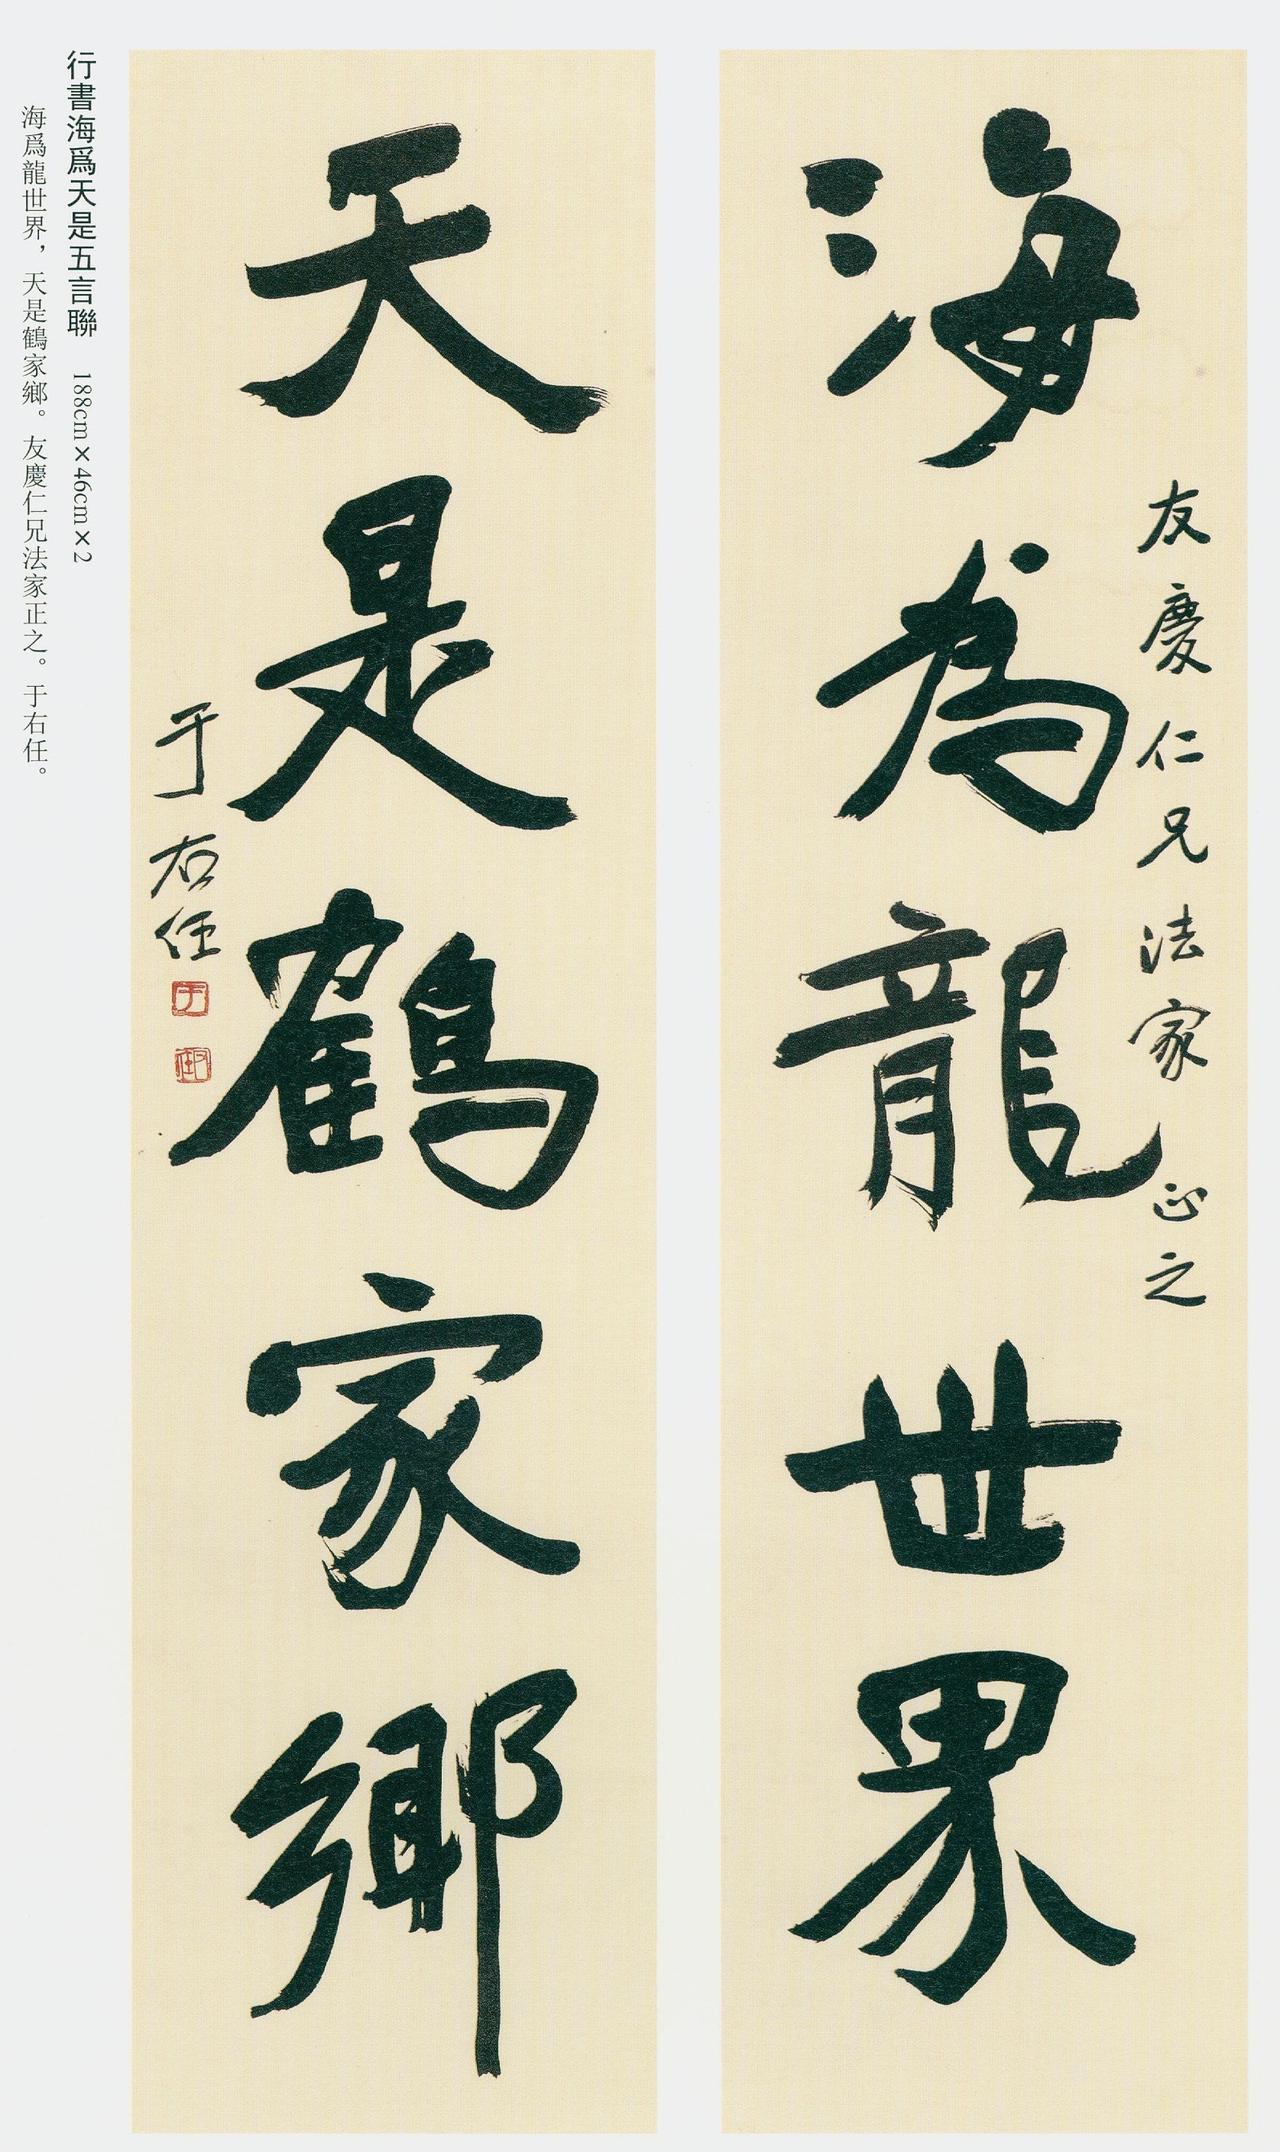 海為龍世界
友慶仁兄法家正之
天是鶴家鄉
于右任
行書海爲天是五言聯 188cm×46cm×2
海爲龍世界，天是鶴家鄉。友慶仁兄法家正之。于右任。